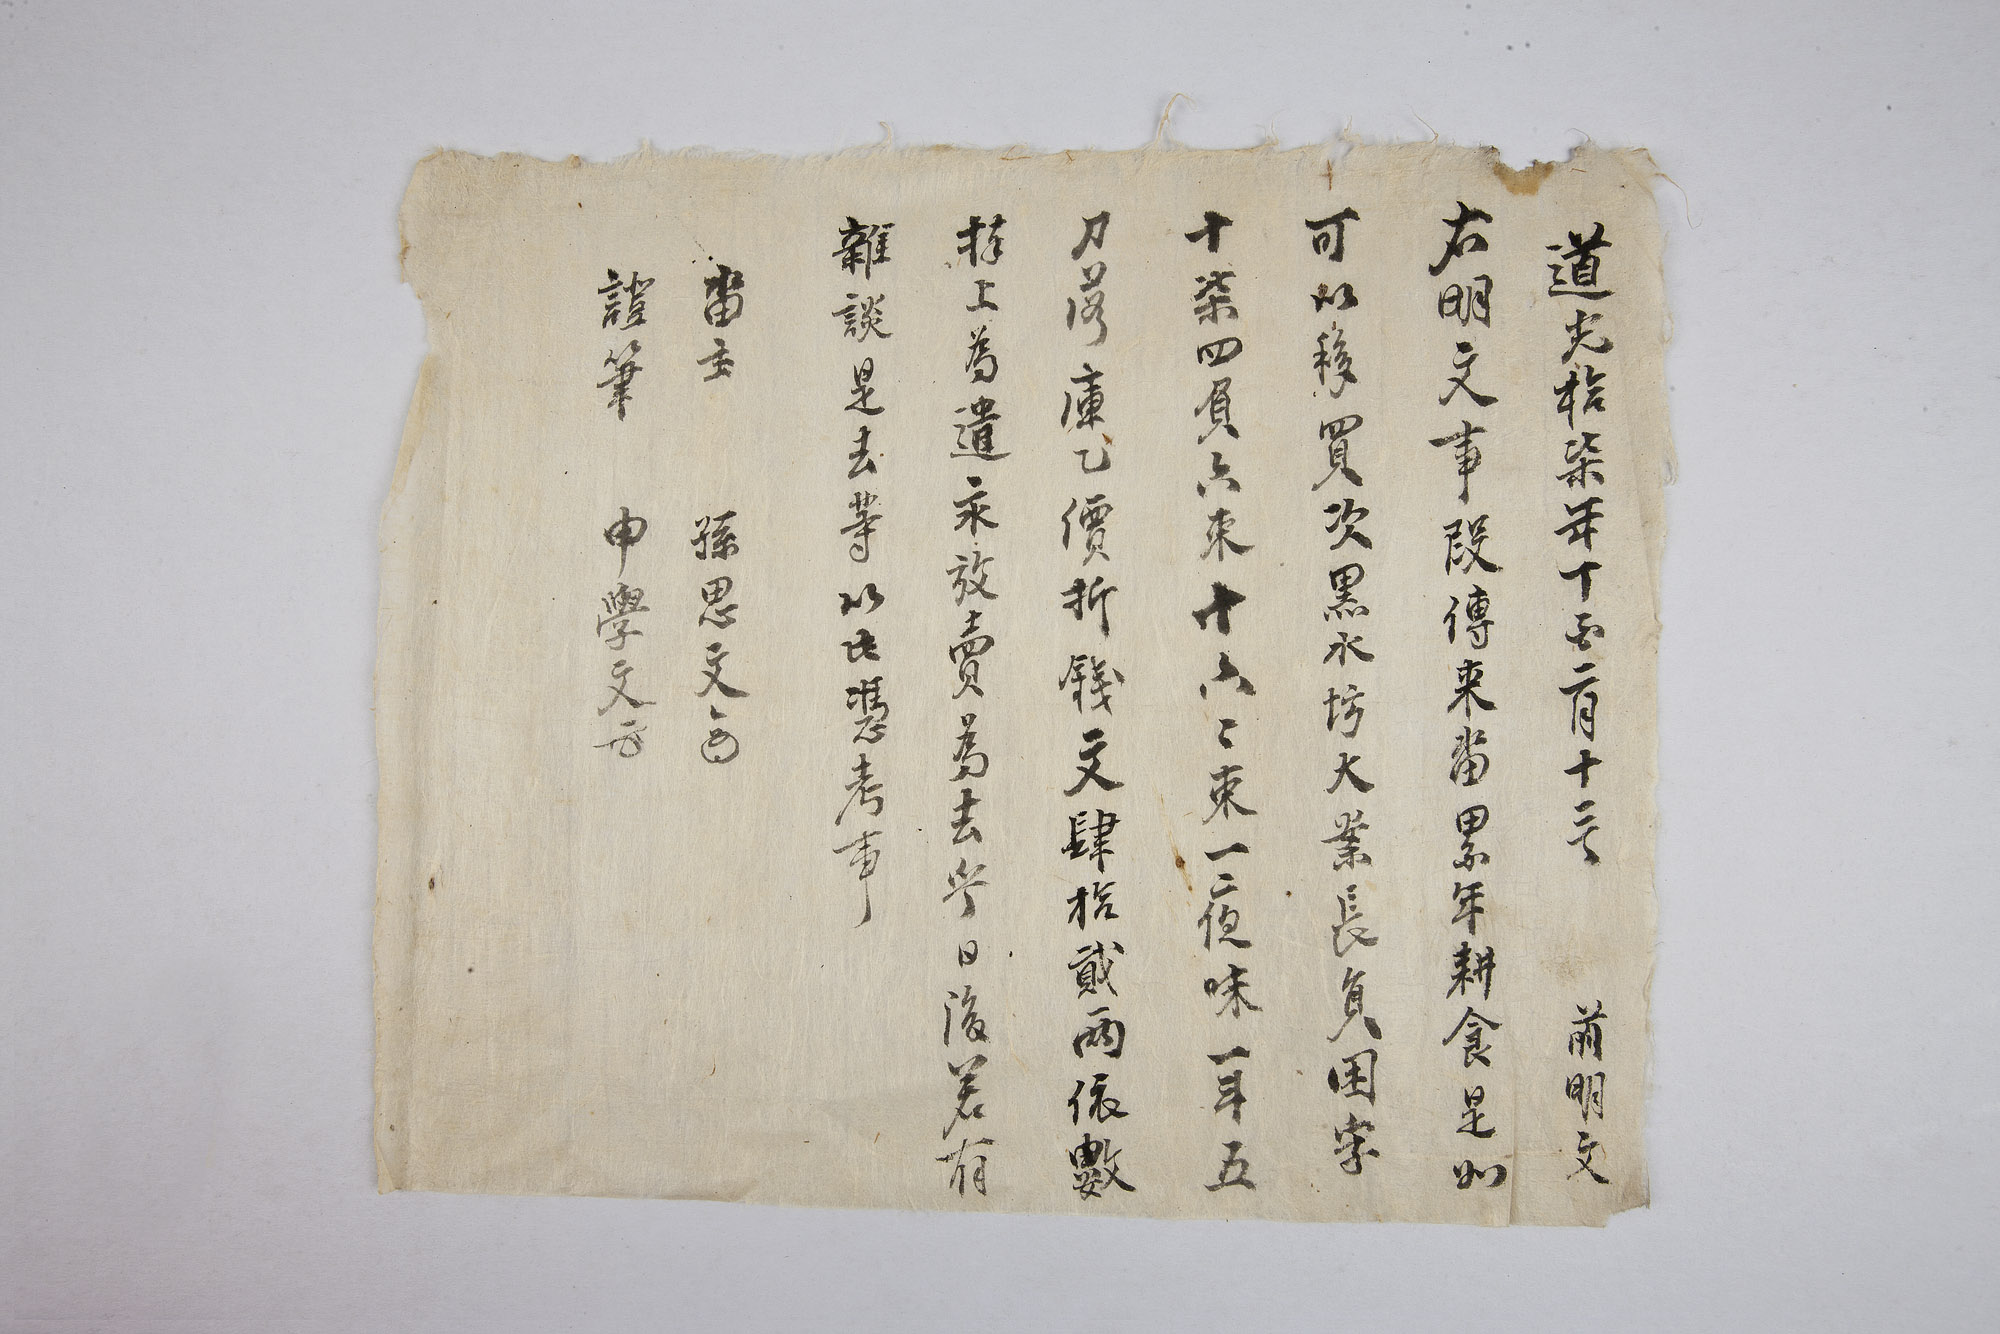 道光拾柒年丁酉二月十三日 前明文
右明文事段傳來畓累年耕食是如
可以移買次黑水坊大業長員困字
十柒四負六束十六二束一夜味一斗五
刀落庫乙價折錢文肆拾貳兩依數
捧上爲遣永放賣爲去乎日後若有
雜談是去等以此憑考事
畓主 孫思文
證筆 申學文